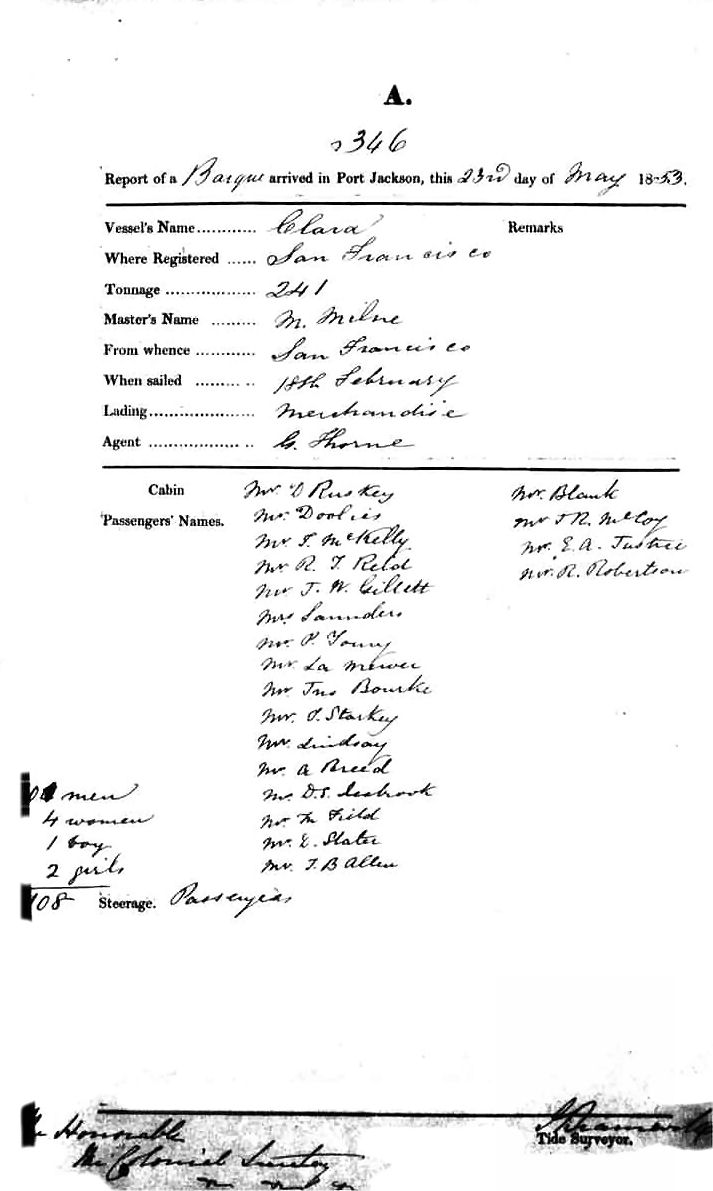 A.
2346
Report of a Barque arrived in Port Jackson, this 23rd day of May 1853.
Vessel's Name............ Clara Remarks
Where Registered ...... San Francisco
Tonnage .................. 241
Master's Name ......... M. Milne
From whence ............ San Francisco
When sailed ......... .. 18th February
Lading..................... Merchandise
Agent .................. .. G. Thorne
Cabin Mr. D Ruskey Mr. Blank
Passengers' Names. Mr. Doolies Mr J R. McCoy
Mr. T. McKelly Mr. E. A. Justice
Mr. R. T. Reid Mr. R. Robertson
Mr J. W. Gillett
Mrs Saunders
Mr. P. Young
Mr. La
Mr Jno Bourke
Mr. J. Starkey
Mr. Lindsay
Mr. A Breed
men Mr. D.S. Seabrook
4 women Mr. M Field
1 boy Mr. E. Slater
2 girls Mr. J. B Allen
108 Steerage. Passengers
Tide Surveyor.
Honorable
The Colonial